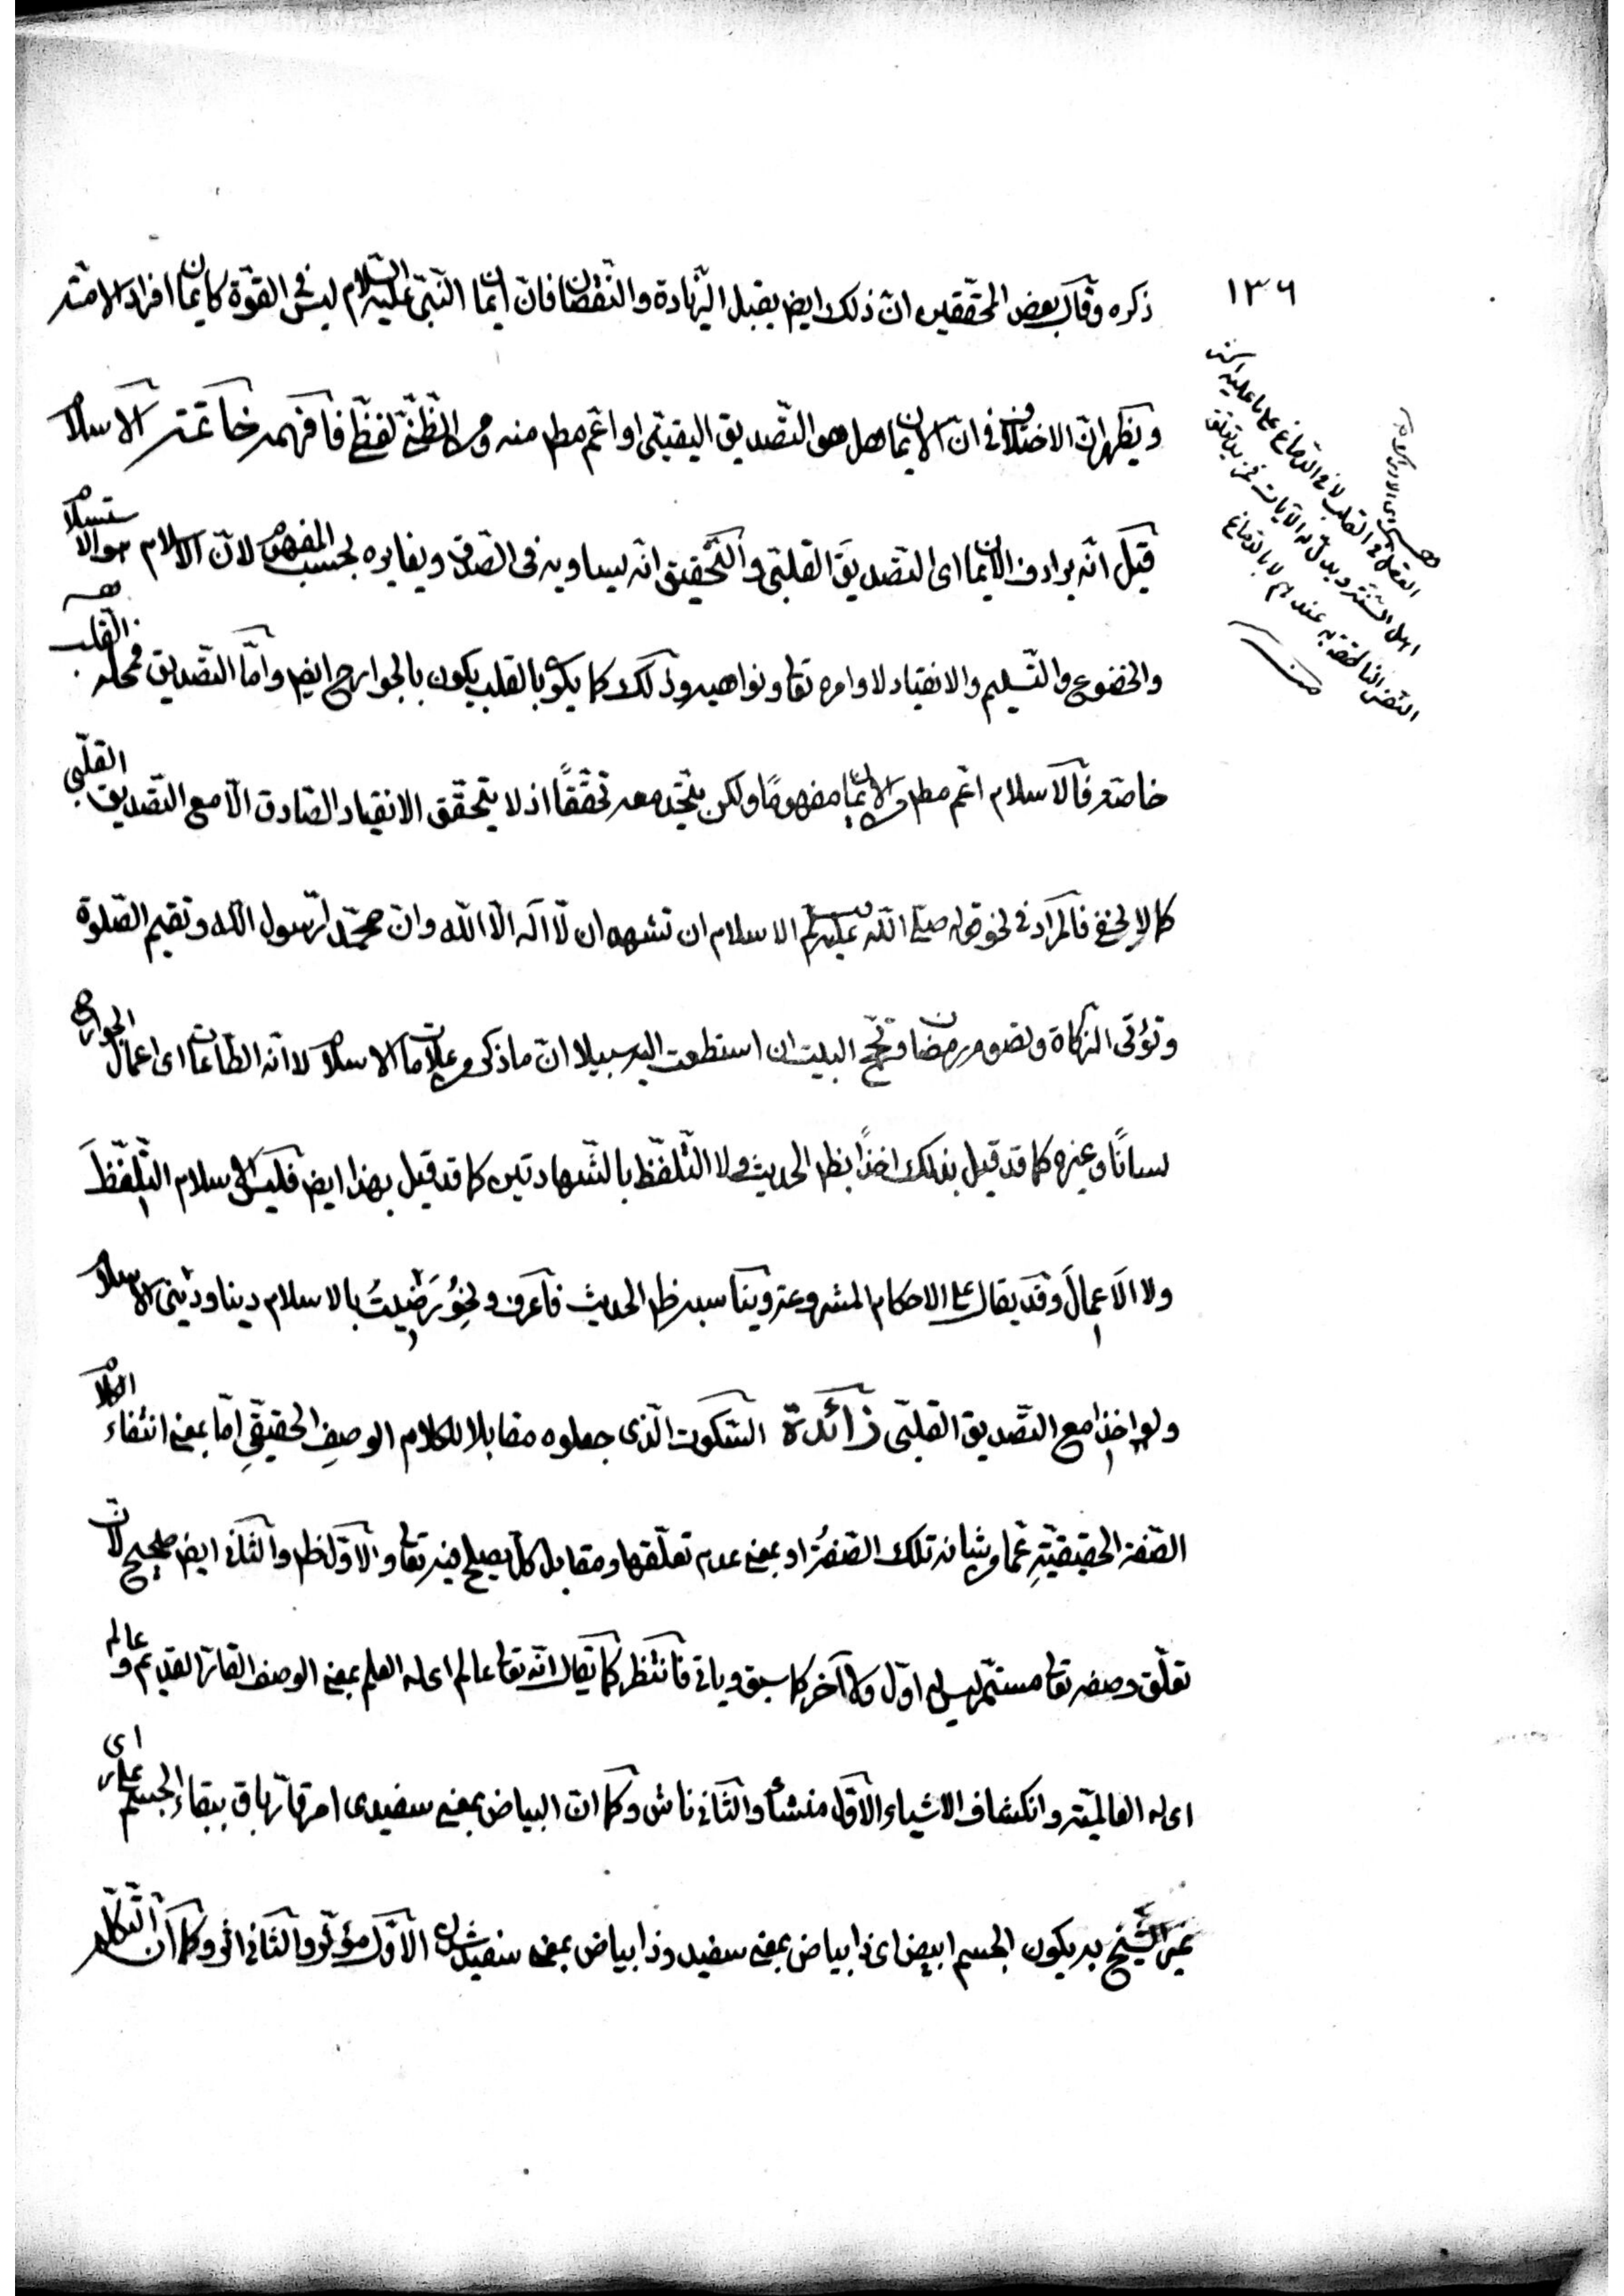 ١٣٦
ذكره وقال بعض المحققين ان ذلك ايض يقبل الزيادة والنقصان فان ايمان النبي عليه السلام ليس في القوة كايمان افراد الامة
ويظهر ان الاختلاف في ان الايمان هل هو التصديق اليقيني او اعم مط منه ومن الظن لفظي فافهمه خاتمة الاسلام
قيل انه يرادف الايمان اى التصديق القلبي والتحقيق انه يساويه في الصدق ويغايره بحسب المفهوم لان الاسلام هو الاستسلام
والخضوع والتسليم والانقياد لاوامره تعا ونواهيه وذلك كما يكون بالقلب يكون بالجوارح ايض واما التصديق فمحله القلب
خاصة فالاسلام اعم مط من الايمان مفهوما ولكن يتحد معه تحققًا اذ لا يتحقق الانقياد الصادق الا مع التصديق القلبي
كما لا يخفى فالمراد في نحو قوله صلى الله عليه وسلم الاسلام ان تشهد ان لا اله الا الله وان محمدا رسول الله وتقيم الصلوة
وتؤتى الزكاة وتصوم رمضان وتحج البيت ان استطعت اليه سبيلا ان ما ذكر من علامات الاسلام لا انه الطاعات اى اعمال الجوارح
لسانًا وغيره كما قد قيل بذلك اخذًا بظ الحديث ولا التلفظ بالشهادتين كما قد قيل بهذا ايض فليس الاسلام التلفظَ
ولا الاعمالَ وقد يقال على الاحكام المشروعة ويناسبه ظ الحديث فاعرف ونحوُ رَضيتُ بالاسلام دينا وديني الاسلام
ولو اخذا مع التصديق القلبي زائدة السكوت الذى جعلوه مقابلا للكلام الوصفِ الحقيقي اما بمعنى انتفاء الكلام
الصفة الحقيقيةِ عما من شانه تلك الصفةُ او بمعنى عدم تعلقها ومقابل كل يصلح فيه تعا والاول ظ والثاني ايض صحيح لان
تعلق وصفه تعا مستمر ليس له اول ولا آخر كما سبق وياتى فانتظر كما يقال انه تعا عالم اى له العلم بمعنى الوصف القار القديم وعالم
اى له العالمية وانكشاف الاشياء الاول منشأ والثاني ناش وكما ان البياض بمعنى سفيدى امر قار باق ببقاء الجسم اى
الشيخ به يكون الجسم ابيض اى ذا بياض بمعنى سفيد وذا بياض بمعنى الاول مؤثر والثاني اثر وكما ان التكلم
العقل في القلب لا في الدماغ على ما عليه
اهل السنة ويدل له الآيات
النفس الناطقة به عندهم لا بالدماغ
منه